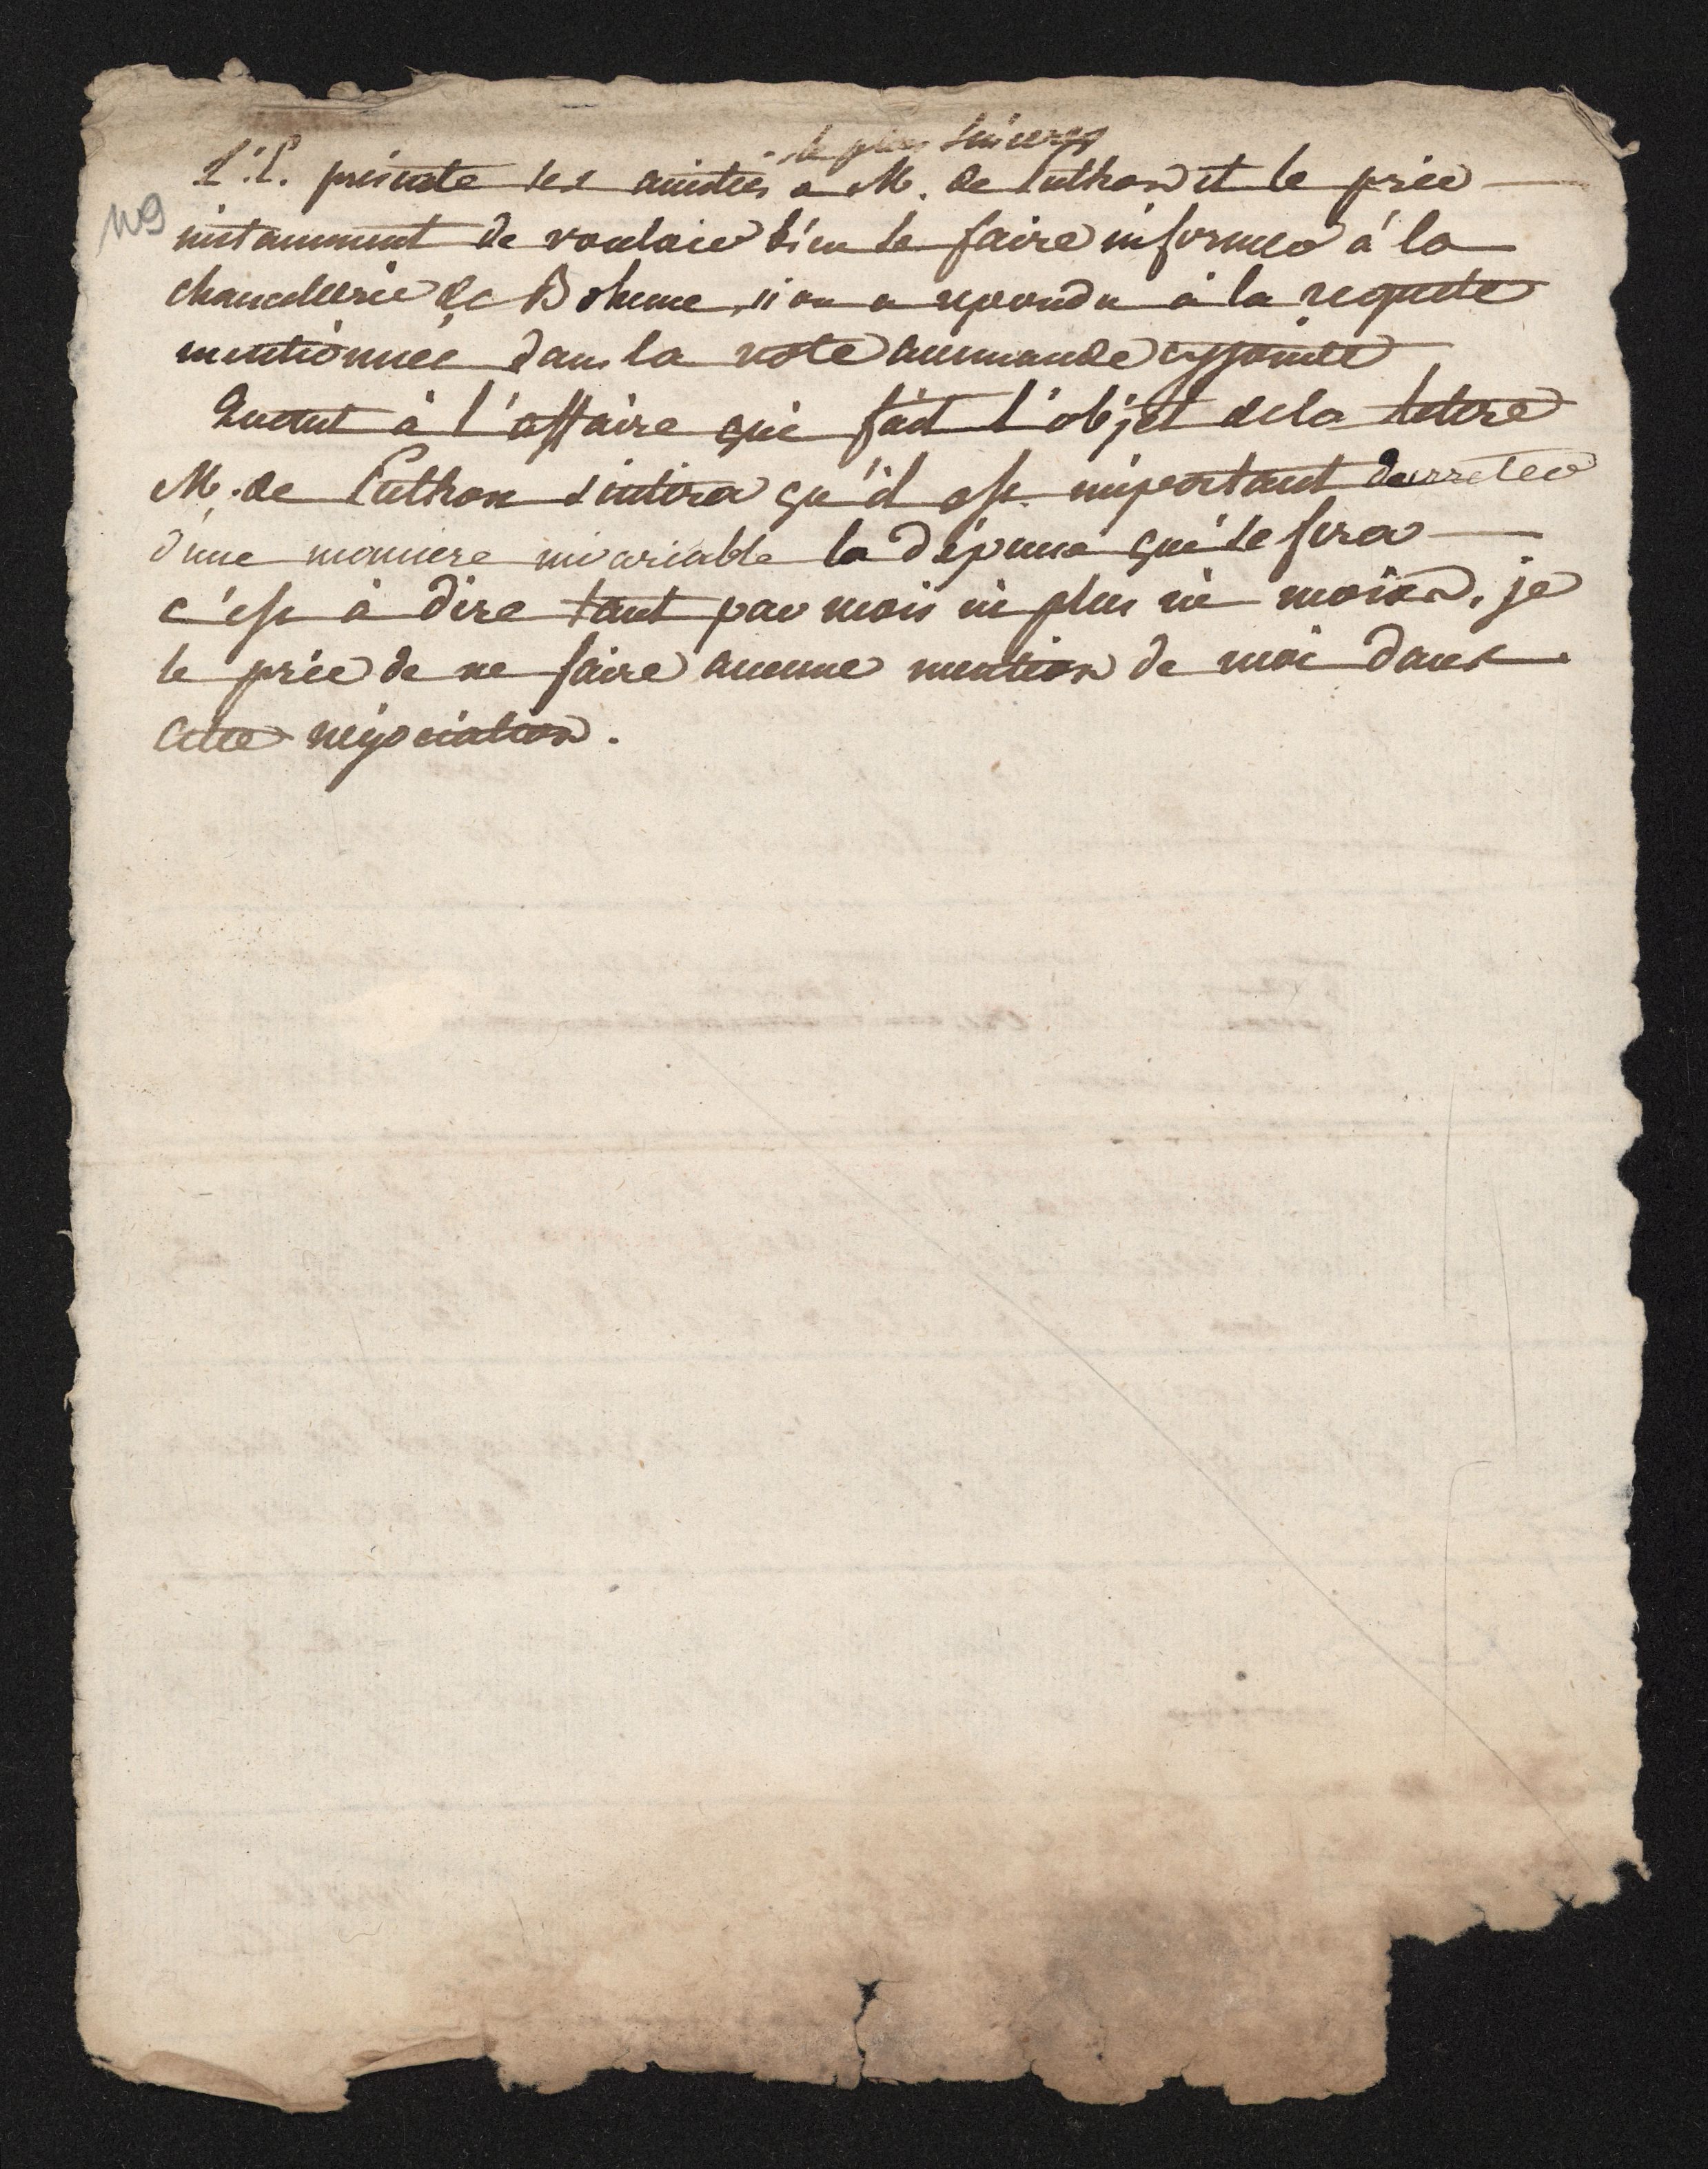 le plus sinceres
L'E. presente ses amitiés a M. de Puthon et le prie
instamment de vouloir bien se faire informer à la
chancellerie de Boheme, si on a repondu à la requete
mentionnée dans la note allemande cyjointe
Quant à l'affaire qui fait l'objet de la lettre
M. de Puthon sentira qu'il est important d'arreter
d'une maniere invariable la dépense qui se fera
c'est à dire tant par mois ni plus ni moins. je
le prie de ne faire aucune mention de moi dans
cette négociation.